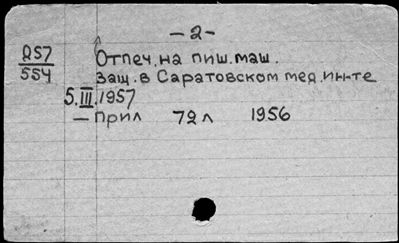 - 2 -
Д57
554
Отпеч. на пиш. маш.
Защ. в Саратовском мед. ин-те
5.III.1957
— Прил 72 л 1956